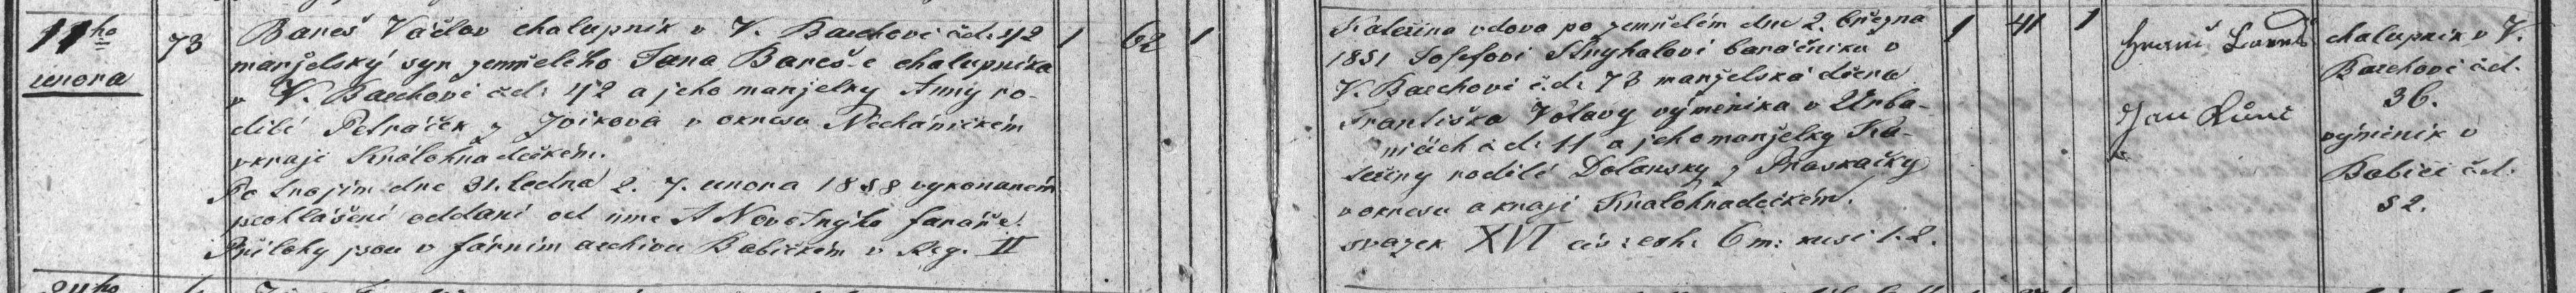 11ho
unora
73
Bareš Václav chalupník v V. Barchově čd. 42
manželský syn zemřelého Jana Bareše chalupníka
v V. Barchově čd. 42 a jeho manželky Anny ro-
dilé Petráček z v okresu Nechanickém
v kraji Králohradeckém.
Po trojím dne 31. ledna 2. 7. unora 1858 vykonaném
prohlášení oddaní od mne A Novotnýho faráře.
Přílohy jsou v fárním archivu Babickém v Reg. II
1
62
1
Kateřina vdova po zemřelém dne 2. března
1851 Josefovi baráčníku v
V. Barchově č.d. 73 manželská dcera
Františka Votavy výměníka v Urba-
nicích čd. 11 a jeho manželky Ka-
teřiny rodilé Dolansky z Praskačky
v okresu a kraji Králohradeckém.
svazek XVI čís: exh: 6 m: kusé 1. 2.
1
41
1
Jan
chalupník v V.
Barchově čd.
36.
výměník v
Babicí čd.
52.